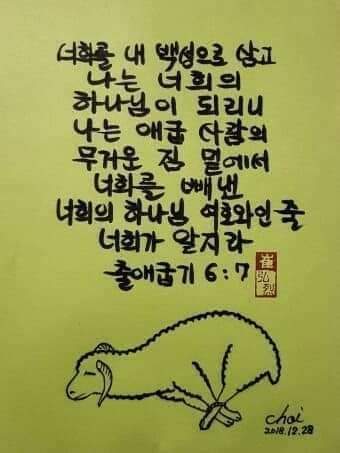 너희를 내 백성으로 삼고
나는 너희의
하나님이 되리니
나는 애굽 사람의
무거운 짐 밑에서
너희를 빼낸
너희의 하나님 여호와인 줄
너희가 알지라
출애굽기 6:7
崔
弘
烈
choi
2018.12.28